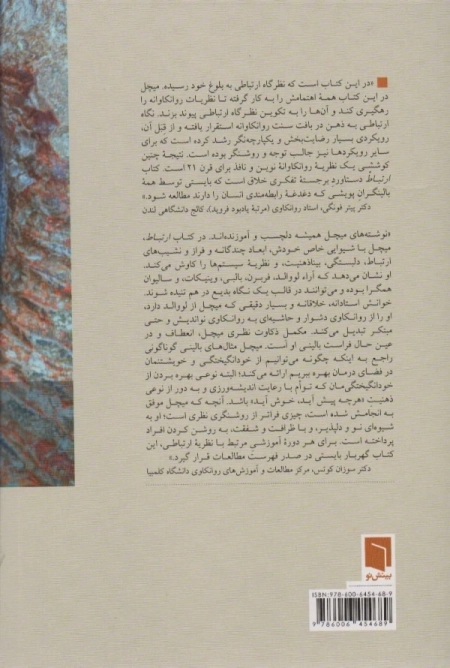 «در این کتاب است که نظرگاه ارتباطی به بلوغ خود رسیده. میچل
در این کتاب همهٔ اهتمامش را به کار گرفته تا نظریات روانکاوانه را
رهگیری کند و آن‌ها را به تکوین نظرگاه ارتباطی پیوند بزند. نگاه
ارتباطی به ذهن در بافت سنت روانکاوانه استقرار یافته و از قِبَل آن،
رویکردی بسیار رضایت‌بخش و یکپارچه‌نگر رشد کرده است که برای
سایر رویکردها نیز جالب توجه و روشنگر بوده است. نتیجهٔ چنین
کوششی یک نظریهٔ روانکاوانهٔ نوین و نافذ برای قرن ۲۱ است. کتاب
ارتباط دستاورد برجستهٔ تفکری خلاق است که بایستی توسط همهٔ
بالینگران پویشی که دغدغهٔ رابطه‌مندی انسان را دارند مطالعه شود.»
دکتر پیتر فونگی، استاد روانکاوی (مرتبهٔ یادبود فروید)، کالج دانشگاهی لندن
«نوشته‌های میچل همیشه دلچسب و آموزنده‌اند. در کتاب ارتباط،
میچل با شیوایی خاص خودش، ابعاد چندگانه و فراز و نشیب‌های
ارتباط، دلبستگی، بیناذهنیت، و نظریهٔ سیستم‌ها را کاوش می‌کند.
او نشان می‌دهد که آراء لووالد، فربرن، بالبی، وینیکات، و سالیوان
همگرا بوده و می‌توانند در قالب یک نگاه بدیع در هم تنیده شوند.
خوانش استادانه، خلاقانه و بسیار دقیقی که میچل از لووالد دارد،
او را از روانکاوی دشوار و حاشیه‌ای به روانکاوی نواندیش و حتی
مبتکر تبدیل می‌کند. مکمل ذکاوت نظری میچل، انعطاف و در
عین حال فراست بالینی او است. میچل مثال‌های بالینی گوناگونی
راجع به اینکه چگونه می‌توانیم از خودانگیختگی و خویشتنمان
در فضای درمان بهره ببریم ارائه می‌کند؛ البته نوعی بهره بردن از
خودانگیختگی‌مان که توأم با رعایت اندیشه‌ورزی و به دور از نوعی
ذهنیت «هرچه پیش آید، خوش آید» باشد. آنچه که میچل موفق
به انجامش شده است، چیزی فراتر از روشنگری نظری است؛ او به
شیوه‌ای نو و دلپذیر، و با ظرافت و شفقت، به روشن کردن افراد
پرداخته است. برای هر دورهٔ آموزشی مرتبط با نظریهٔ ارتباطی، این
کتاب گهربار بایستی در صدر فهرست مطالعات قرار گیرد.»
دکتر سوزان کوتس، مرکز مطالعات و آموزش‌های روانکاوی دانشگاه کلمبیا
بینش نو
ISBN: 978-600-6454-68-9
9 786006 454689